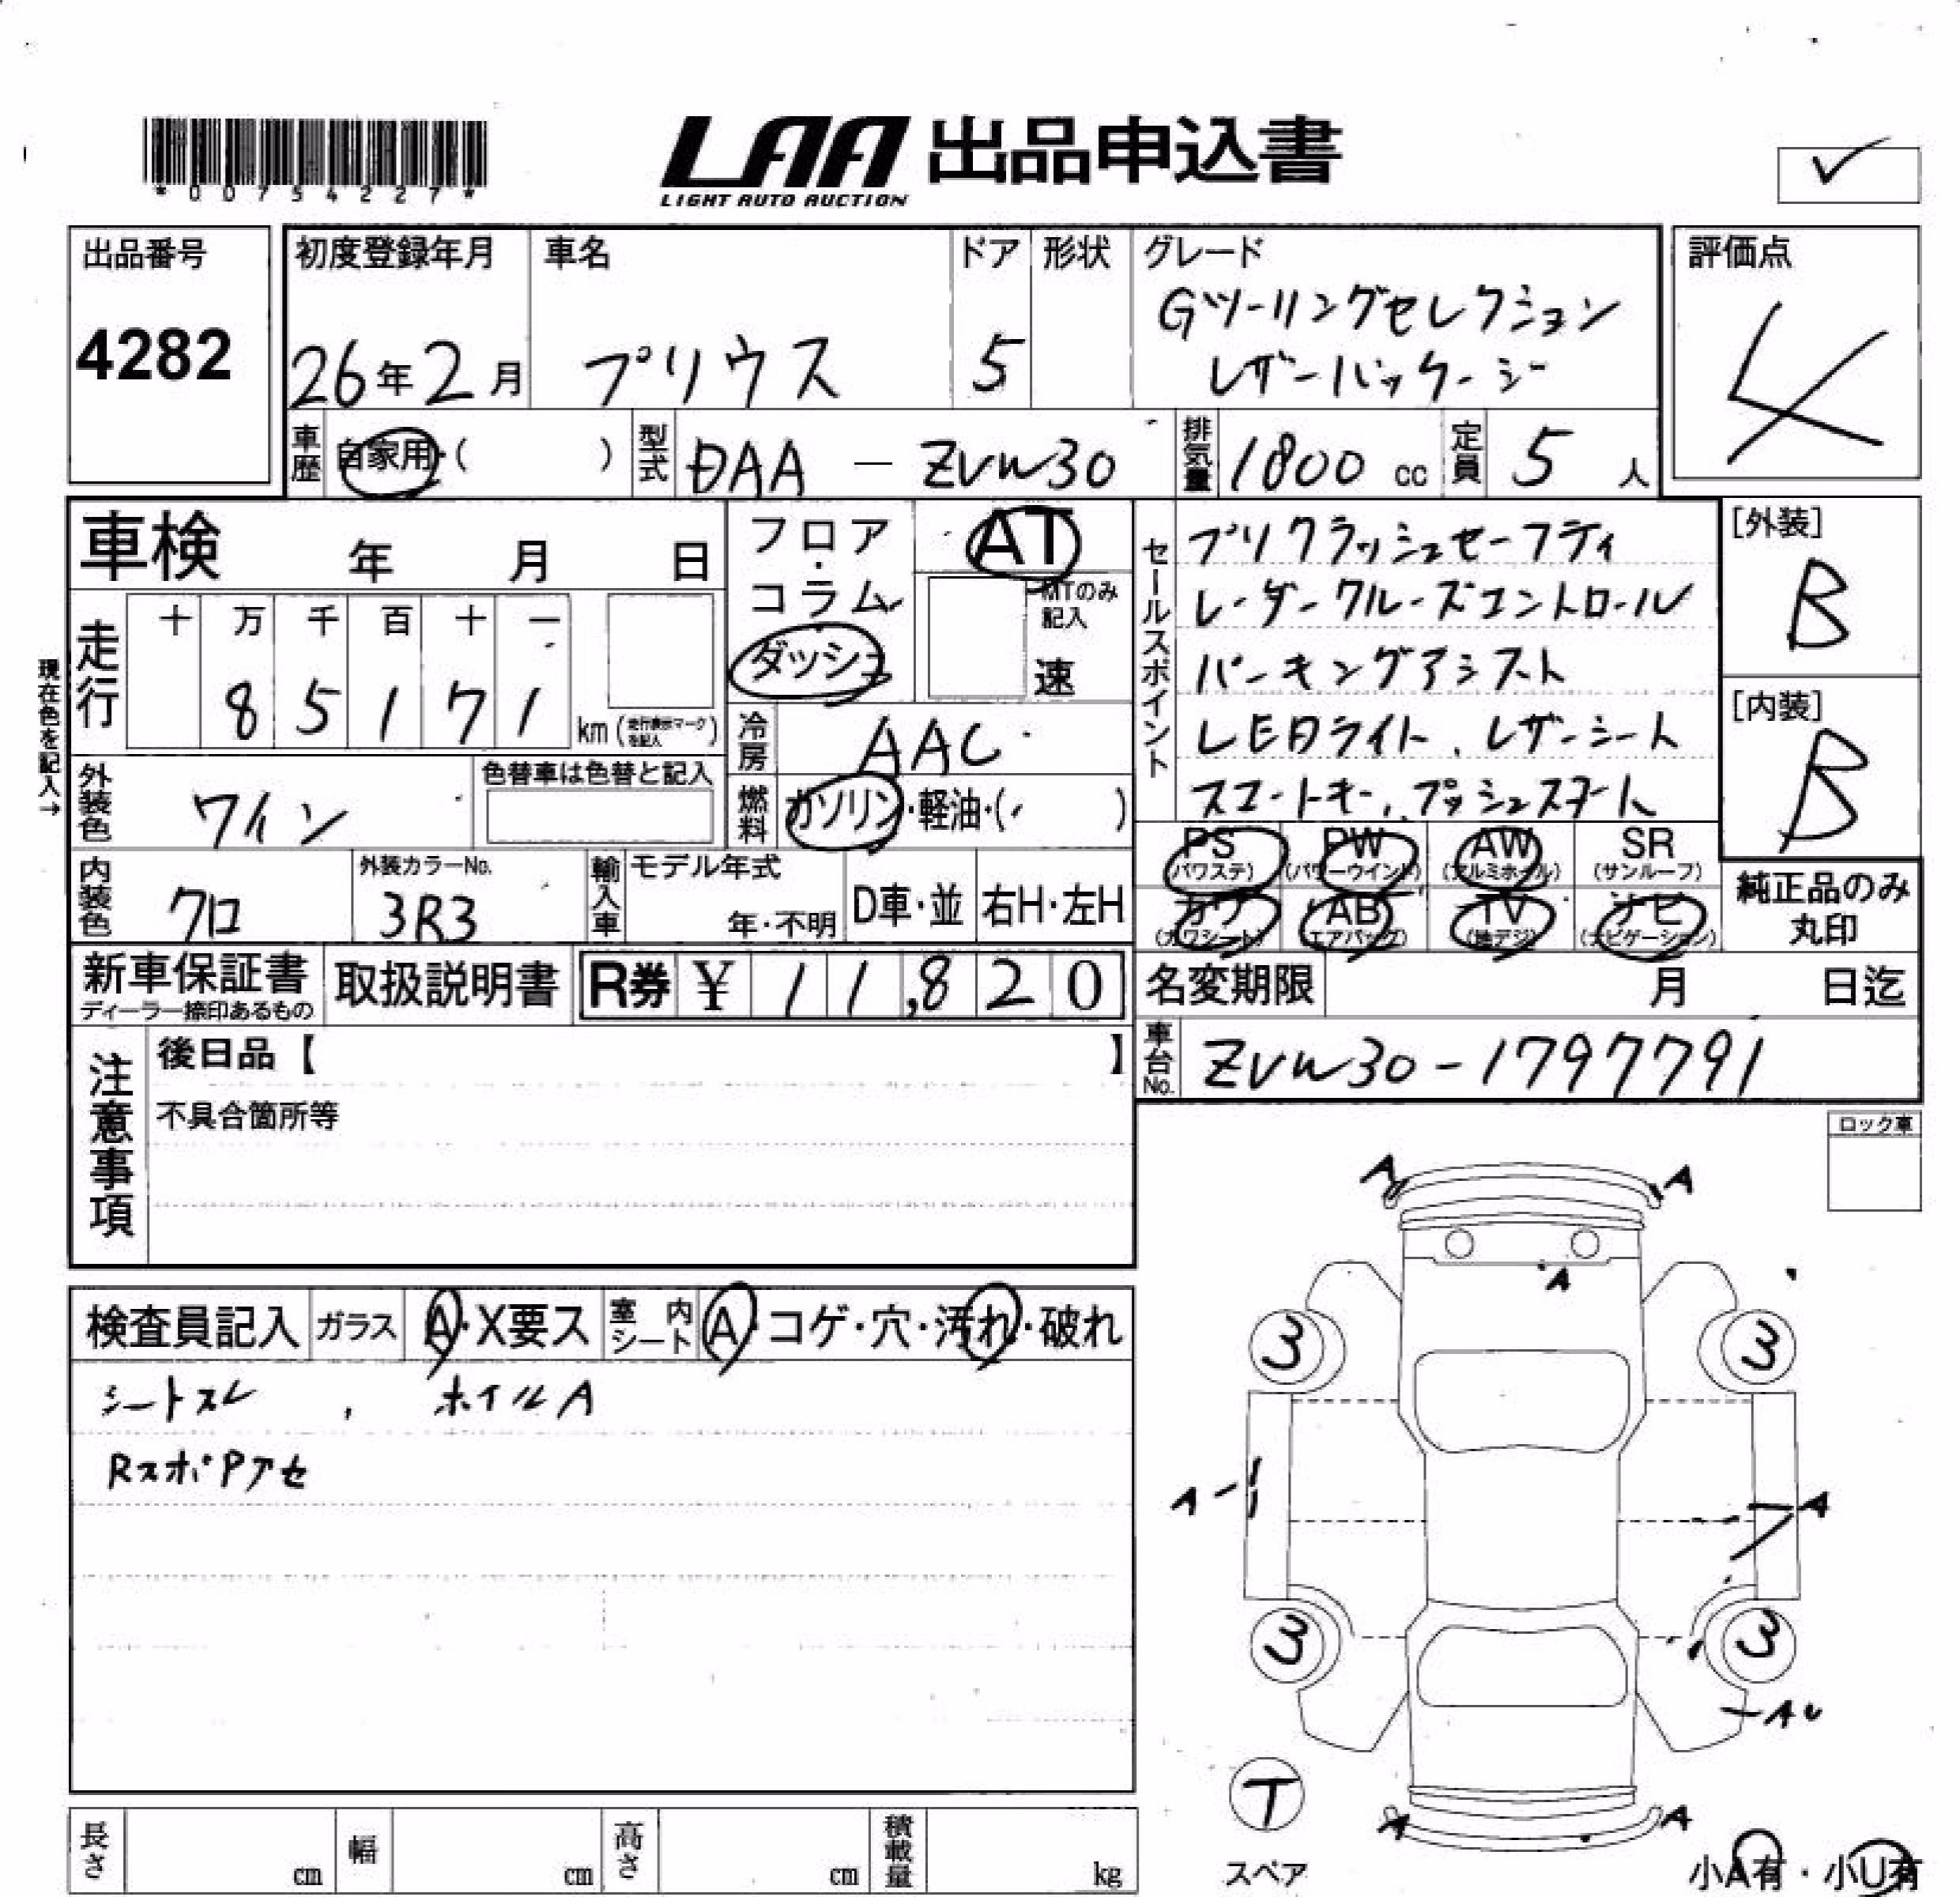 *00754227*
LAA 出品申込書
LIGHT AUTO AUCTION
✓
出品番号
4282
初度登録年月
26年2月
車名
プリウス
ドア
5
形状
グレード
Gツーリングセレクション
レザーパッケージ
評価点
4
車歴
自家用・( )
型式
DAA － ZVW30
排気量
1800 cc
定員
5 人
車検 年 月 日
フロア・
コラム・
ダッシュ
AT
MTのみ
記入
速
セールスポイント
プリクラッシュセーフティ
レーダークルーズコントロール
パーキングアシスト
LEDライト、レザーシート
スマートキー、プッシュスタート
[外装]
B
[内装]
B
現在色を記入→
走行
十 万 千 百 十 一
8 5 1 7 1
km (走行表示マークを記入)
冷房
AAC
燃料
ガソリン・軽油・( )
外装色
ワイン
色替車は色替と記入
内装色
クロ
外装カラーNo.
3R3
輸入車
モデル年式
年・不明
D車・並
右H・左H
PS
(パワステ)
PW
(パワーウインド)
AW
(アルミホイル)
SR
(サンルーフ)
カワ
(カワシート)
AB
(エアバッグ)
TV
(地デジ)
ナビ
(ナビゲーション)
純正品のみ
丸印
新車保証書
ディーラー捺印あるもの
取扱説明書
R券 ¥ 11,820
名変期限 月 日迄
車台No.
ZVW30-1797791
注意事項
後日品【 】
不具合箇所等
ロック車
検査員記入
ガラス
A・X要ス
室内
シート
A・コゲ・穴・汚れ・破れ
シートスレ、ホイルA
RスポPアセ
A
A
A
3
3
A
A
3
3
AU
T
スペア
A
A
小A有・小U有
長さ cm
幅 cm
高さ cm
積載量 kg